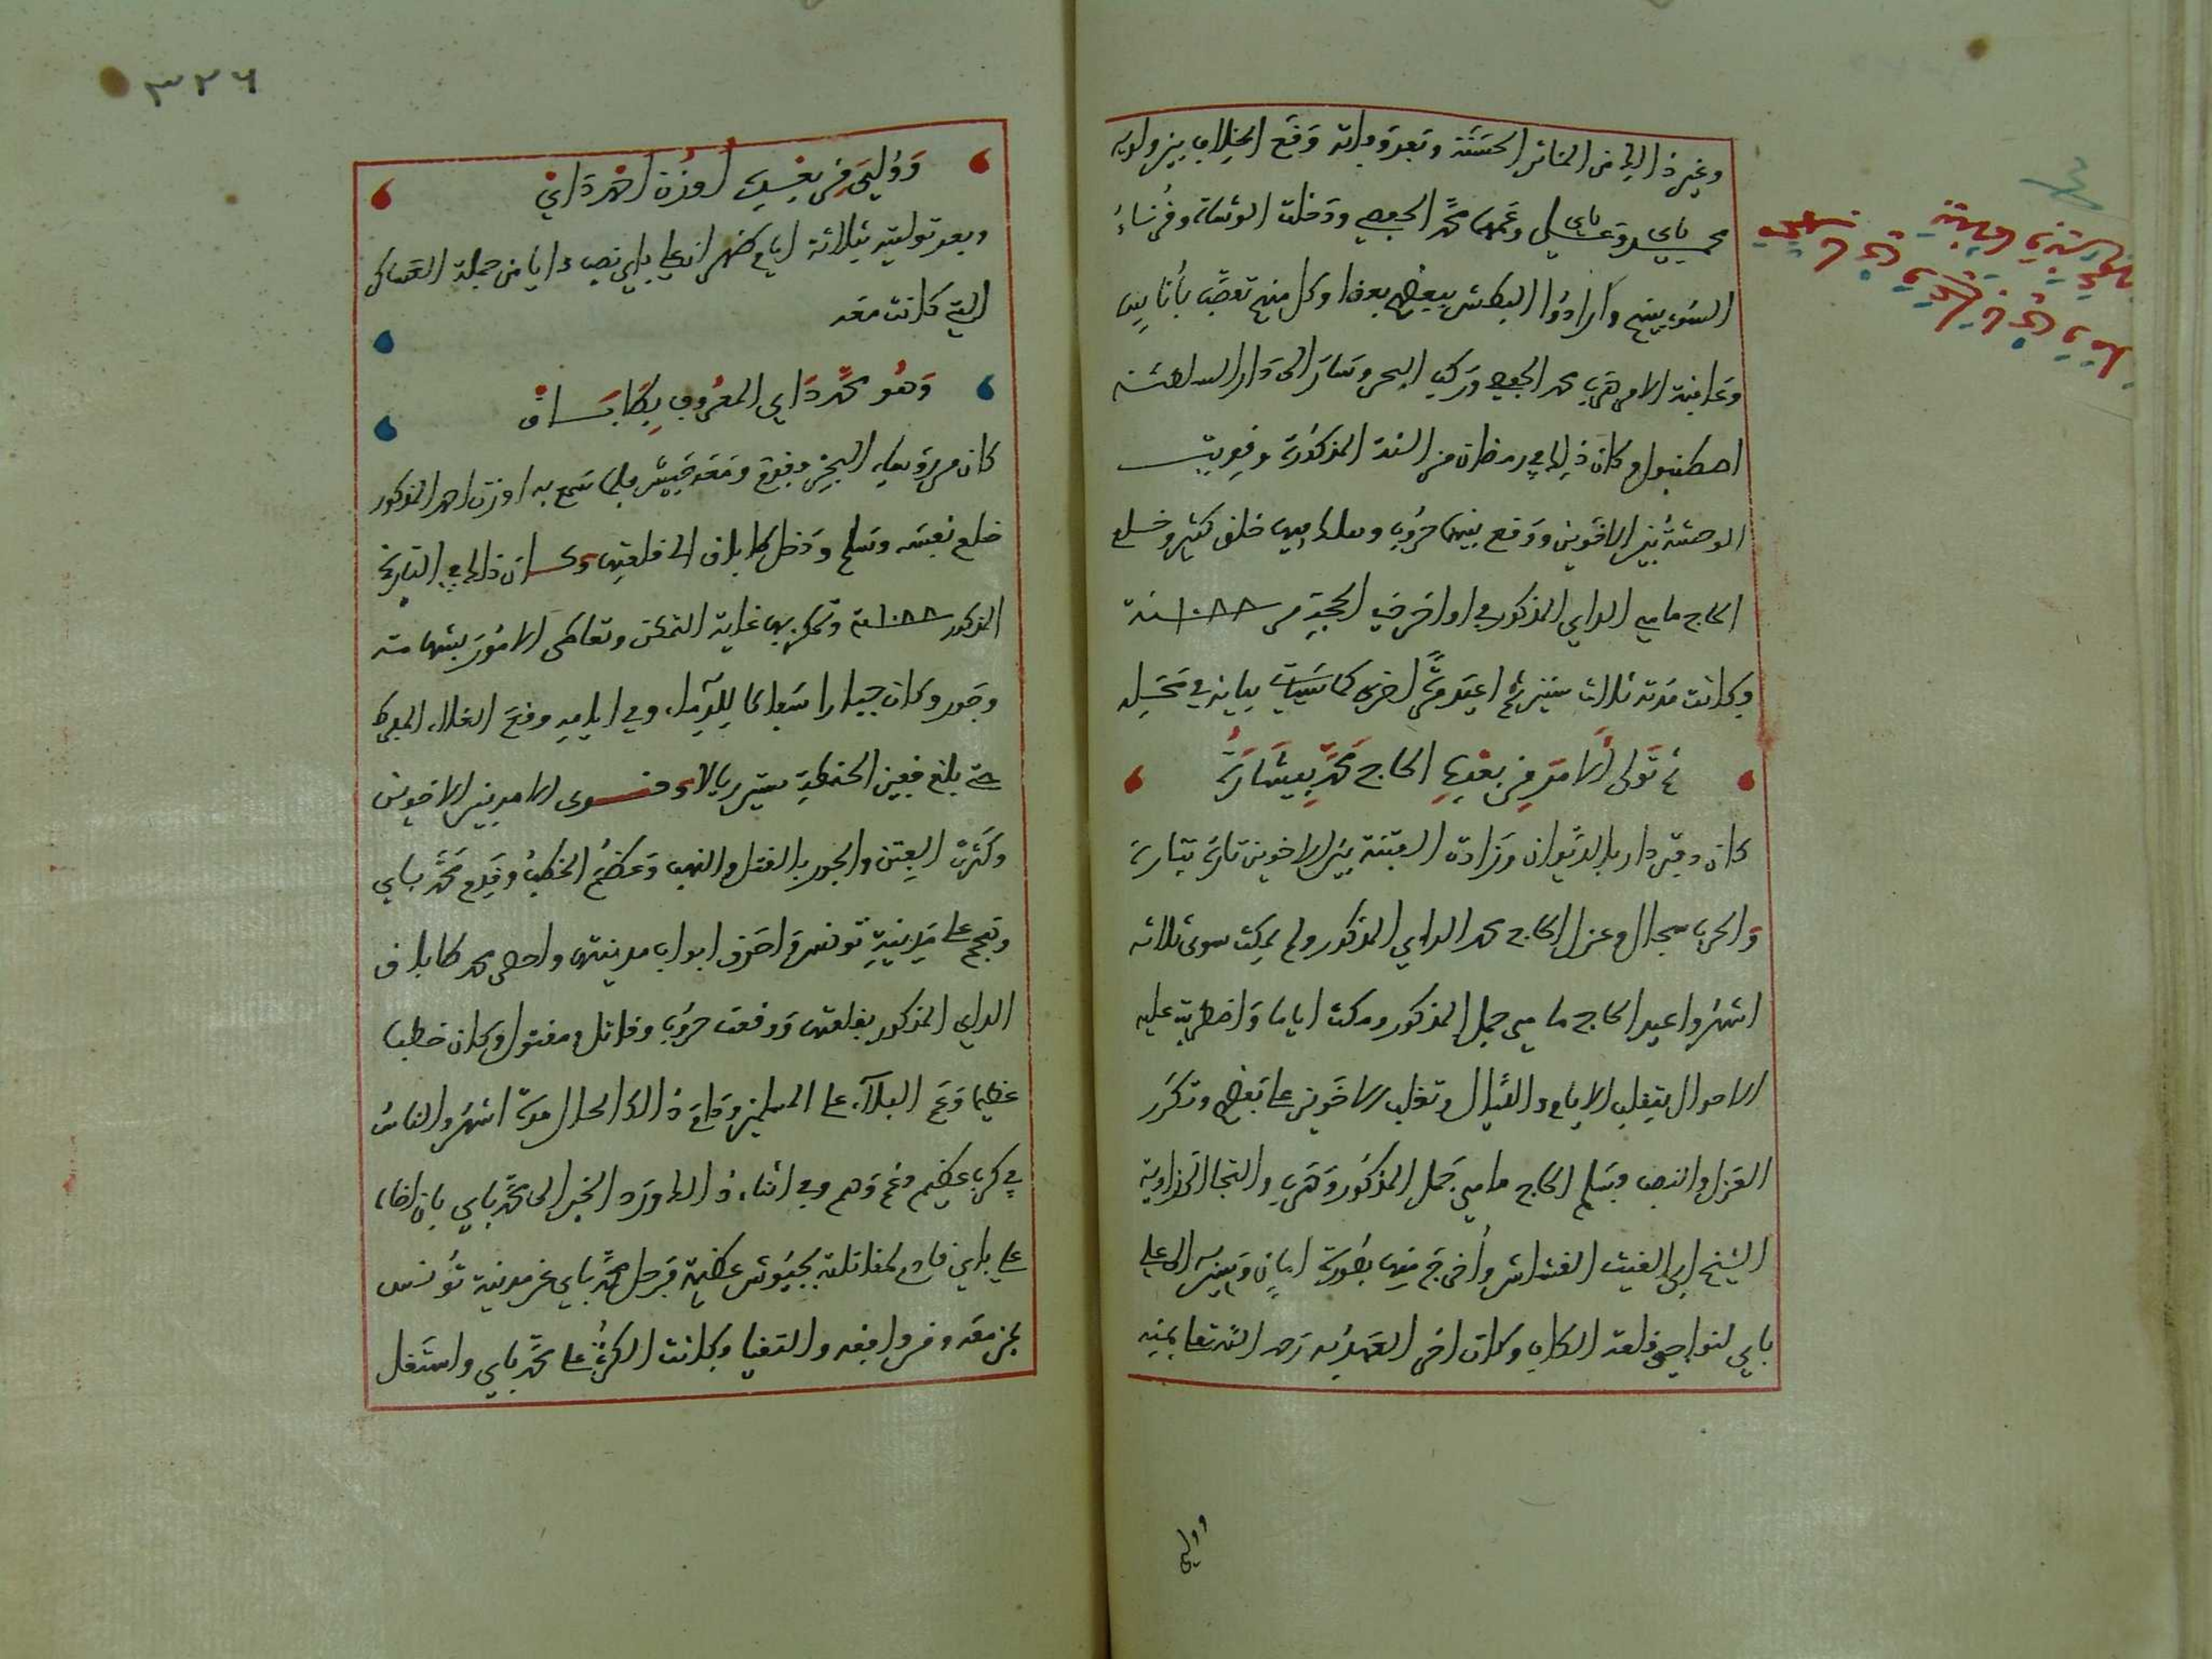 وغير ذالك من المئاثر الحسنة وبعد وفاته وقع الخلاف بين ولديه
محمد باي وعلي باي وعمهما محمد الحفصي ودخلت الوشاة وقرناء
السوء بينهم وأرادوا البطش ببعضهم بعضا وكل منهم تعصب بأناس
وعاقبة الامر هرب محمد الحفصي وركب البحر وسار الى دار السلطنة
اصطنبول وكان ذالك في رمضان من السنة المذكورة وقويت
الوحشة بين الاخوين ووقع بينهما حروب وهلك فيها خلق كثير وخلع
الحاج مامي الداي المذكور في اواخر ذي الحجة من سنة ١٠٨٨
وكانت مدته ثلاث سنين ثم اعيد مرة اخرى كما سيأتي بيانه في محله
ثم تولى الامر من بعده الحاج محمد بيشارة
كان دفتردار بالديوان وزادت الفتنة بين الاخوين تارة بتارة
والحرب سجال وعزل الحاج محمد الداي المذكور ولم يمكث سوى ثلاثة
اشهر واعيد الحاج مامي جمل المذكور ومكث اياما واضطربت عليه
الاحوال بتقلب الايام والليال وتغلب الاخوين على بعض وتكرر
العزل والنصب وتسلم الحاج مامي جمل المذكور وهرب والتجا لزاوية
الشيخ ابي الغيث القشاش وأخرج منها بصورة امان وسير الى علي
باي لنواحي قلعة الكاف وكان اخر العهد به رحمه الله تعالى بمنه
وولي
٣٢٦
وولي من بعده اوزن احمد داي
وبعد توليته بثلاثة ايام ظهر ان علي باي نصب دايا من جملة العساكر
التي كانت معه
وهو محمد داي المعروف بطاباق
كان من وسلم ودخل طاباق الى قلعتها وكان ذالك في التاريخ
المذكور سنة ١٠٨٨ وتمكن بها غاية التمكن وتعاطى الامور بشهامة
وجور وكان جبارا سفاكا للدماء وفي ايامه وقع الغلاء المفرط
حتى بلغ قفيز الحنطة ستين ريالا وقوى الامر بين الاخوين
وكثرت الفتن والجور بالقتل والنهب وعظم الخطب وقدم محمد باي
وهجم على مدينة تونس واحرق ابواب مدينتها واحصر محمد طاباق
الداي المذكور بقلعتها ووقعت حروب وقاتل ومقتول وكان خطبا
عظيما وعم البلاء على المسلمين ودام ذالك الحال مدة اشهر والناس
في كرب عظيم وغم وهم وفي اثناء ذالك ورد الخبر الى محمد باي بان اخاه
علي باي قادم لمقاتلته بجيوش عظيمة فرحل محمد باي عن مدينة تونس
بمن معه ومن وافقه والتقيا وكانت الكرة على محمد باي واستقل